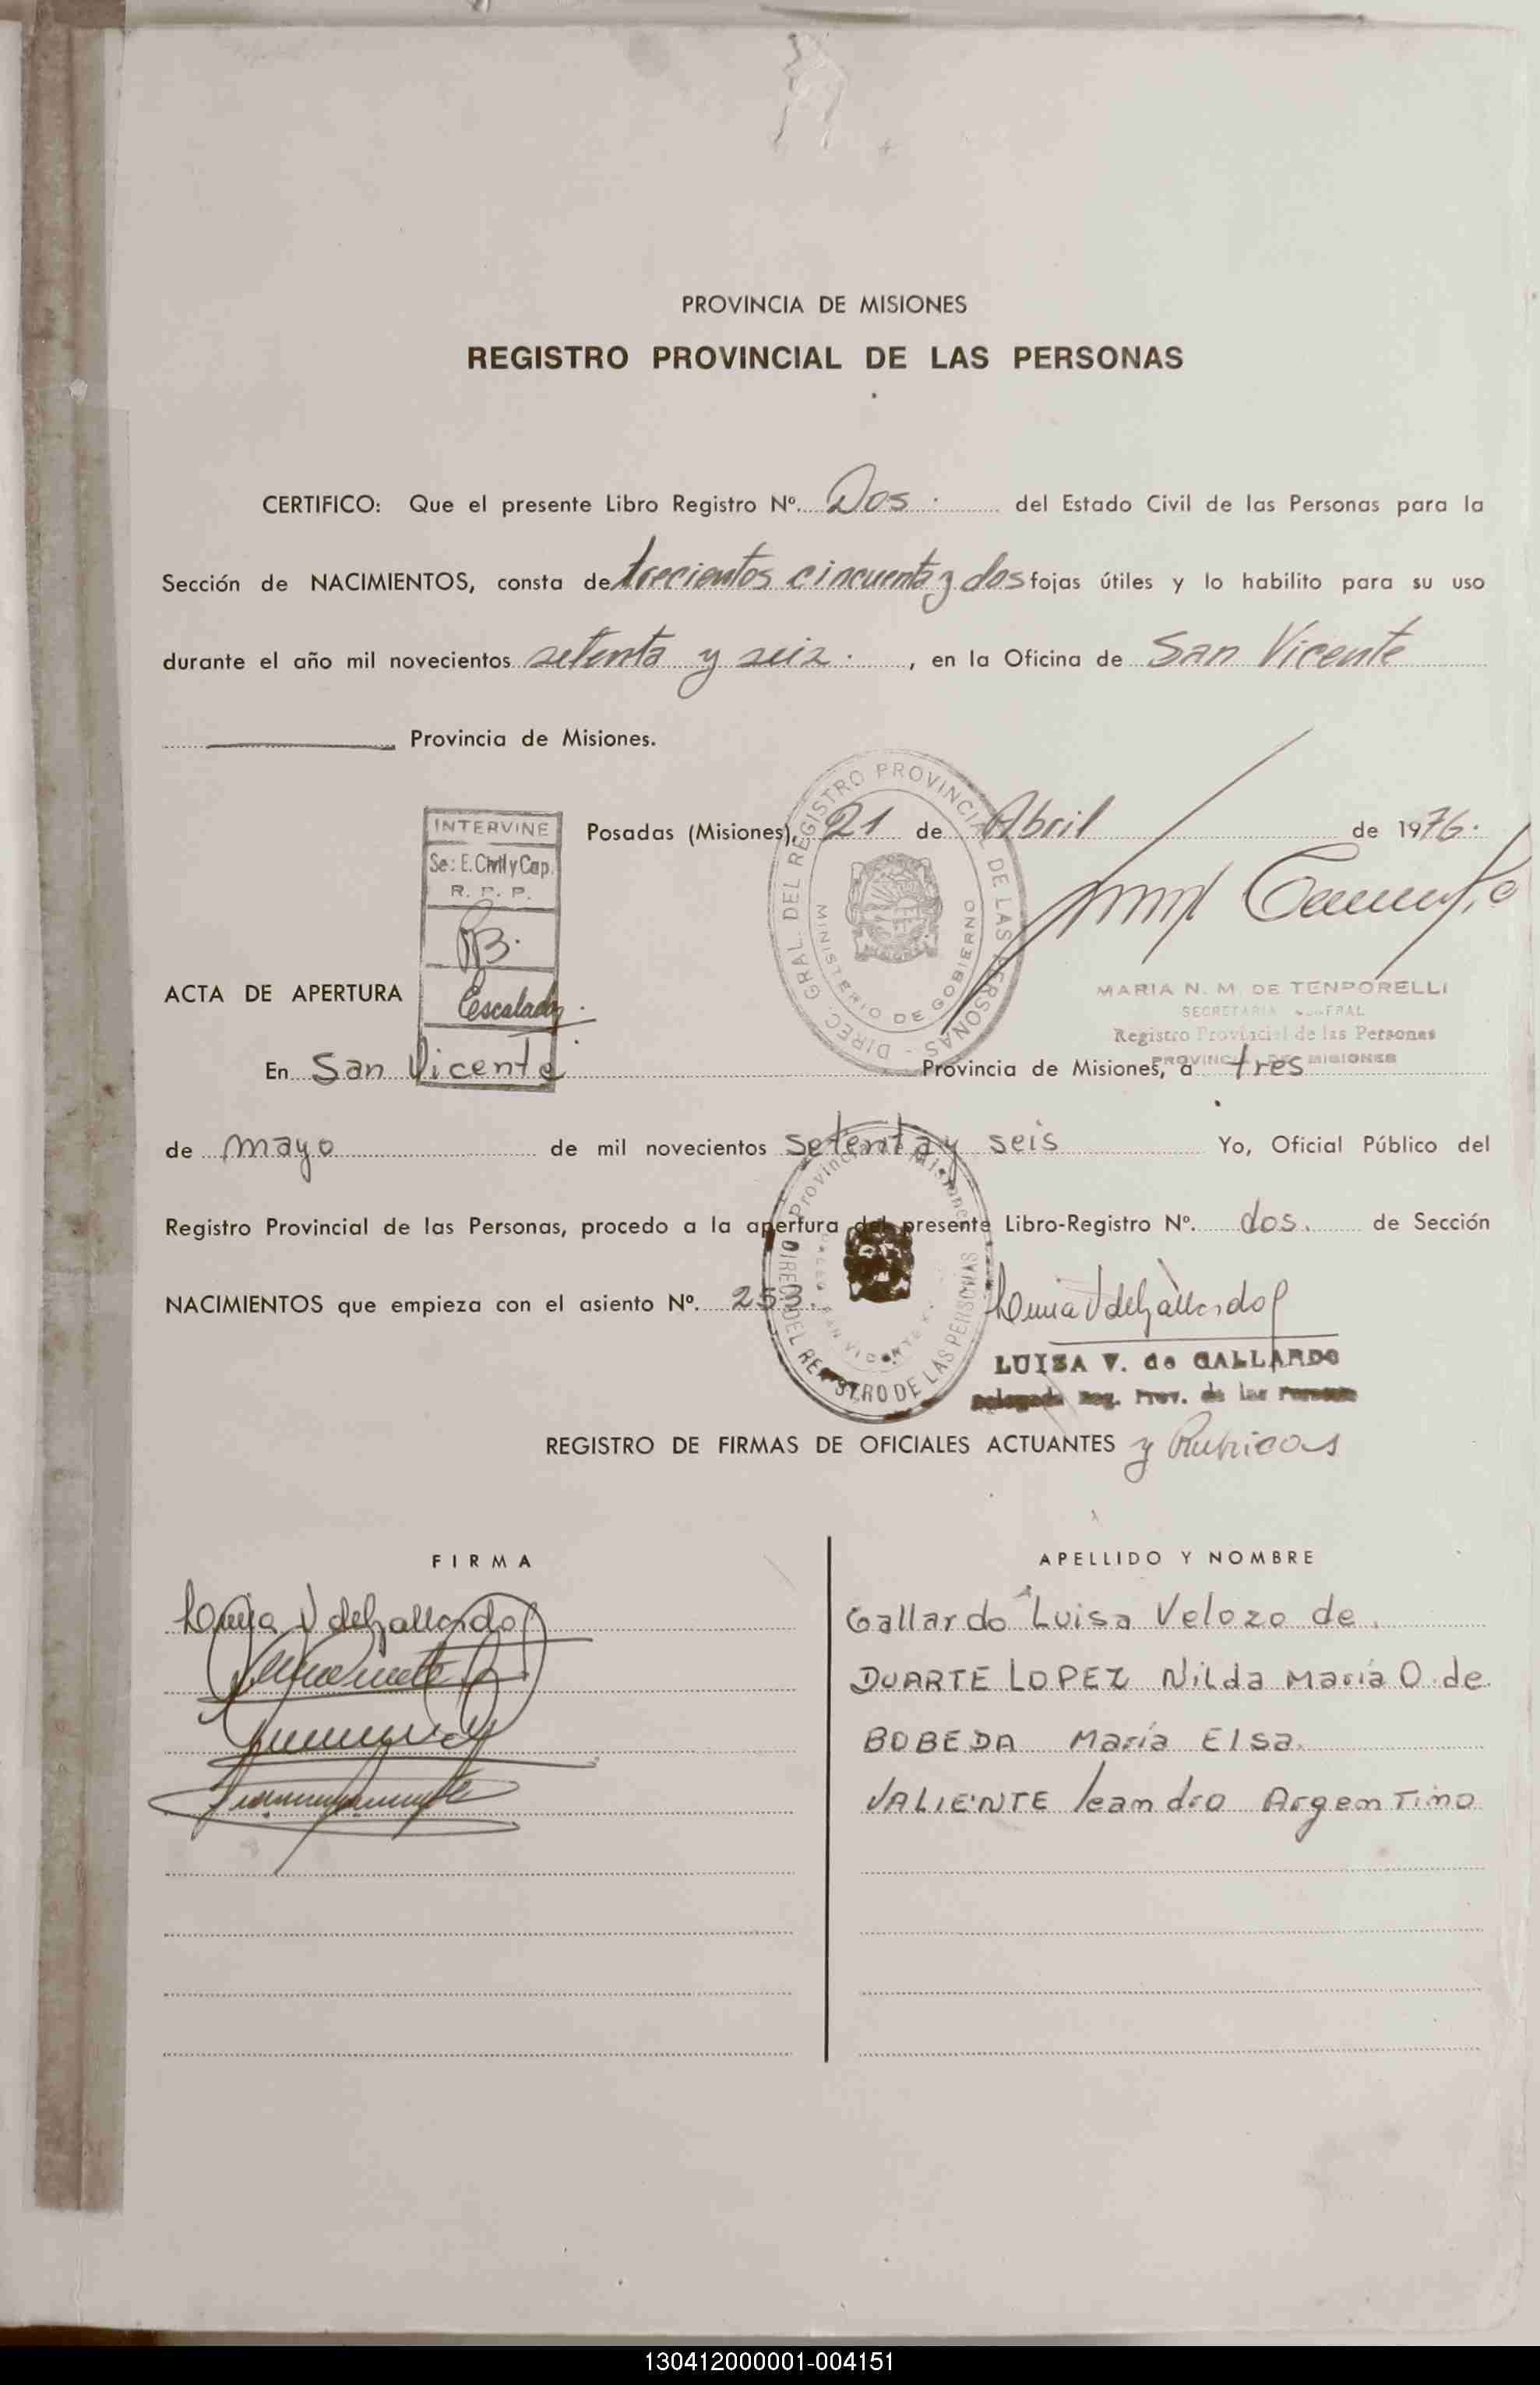 PROVINCIA DE MISIONES
REGISTRO PROVINCIAL DE LAS PERSONAS
CERTIFICO: Que el presente Libro Registro Nº. Dos. del Estado Civil de las Personas para la
Sección de NACIMIENTOS, consta de trecientos cincuenta y dos fojas útiles y lo habilito para su uso
durante el año mil novecientos setenta y seis. , en la Oficina de San Vicente
Provincia de Misiones.
Posadas (Misiones), 21 de Abril de 1976.
INTERVINE
Se: E. Civil y Cap.
R. P. P.
DIREC. GRAL. DEL REGISTRO PROVINCIAL DE LAS PERSONAS
MINISTERIO DE GOBIERNO
MARIA N. M. DE TENPORELLI
Registro Provincial de las Personas
PROVINCIA DE MISIONES
ACTA DE APERTURA
En San Vicente Provincia de Misiones, a tres
de mayo de mil novecientos setenta y seis Yo, Oficial Público del
Registro Provincial de las Personas, procedo a la apertura del presente Libro-Registro Nº. dos. de Sección
NACIMIENTOS que empieza con el asiento Nº. 253.
Provincia de Misiones
DEL REGISTRO DE LAS PERSONAS
LUISA V. de GALLARDO
Delegada Reg. Prov. de las Personas
REGISTRO DE FIRMAS DE OFICIALES ACTUANTES y Rubricas
FIRMA
APELLIDO Y NOMBRE
Gallardo Luisa Velozo de.
DUARTE LOPEZ Nilda María O. de
BOBEDA María Elsa.
VALIENTE leandro Argentino
130412000001-004151